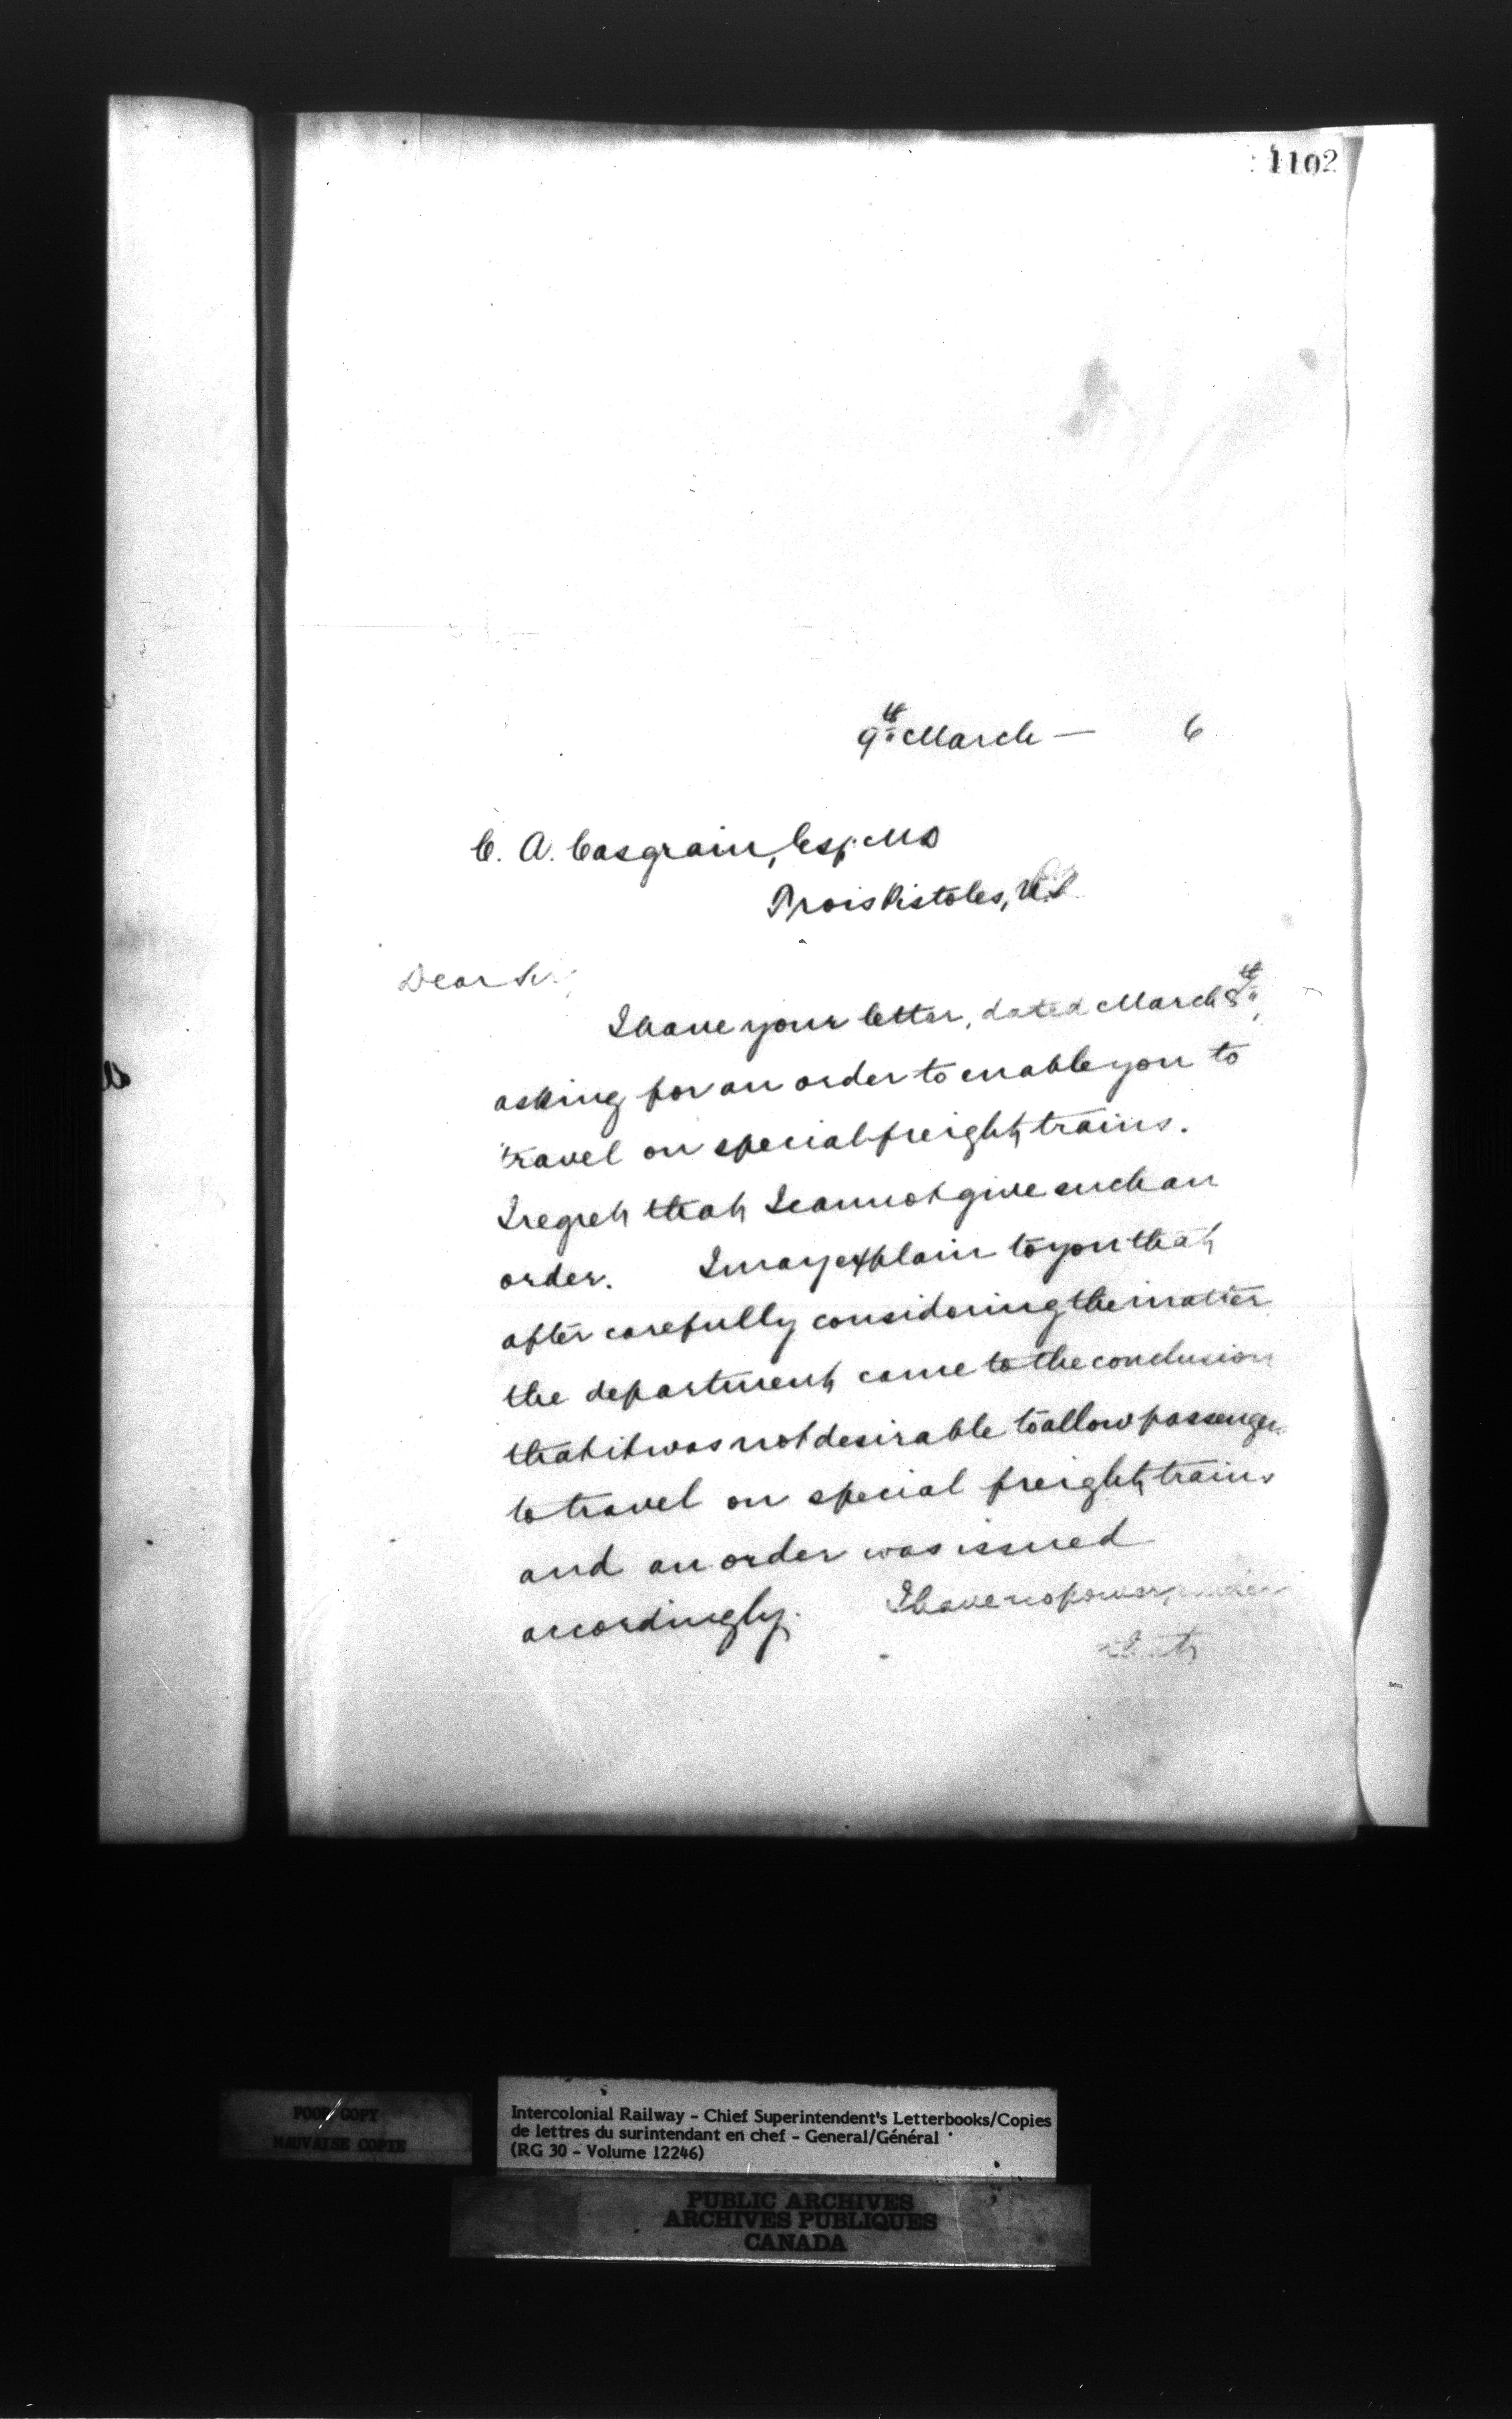 1102
9th March — 6
C. A. Casgrain, Esq. MD
Trois Pistoles,
Dear Sir,
I have your letter, dated March 8th,
asking for an order to enable you to
travel on special freight trains.
I regret that I cannot give such an
order. I may explain to you that
after carefully considering the matter
the department came to the conclusion
that it was not desirable to allow passengers
to travel on special freight trains
and an order was issued
accordingly. I have no power, under
POOR COPY
MAUVAISE COPIE
Intercolonial Railway - Chief Superintendent's Letterbooks/Copies
de lettres du surintendant en chef - General/Général
(RG 30 - Volume 12246)
PUBLIC ARCHIVES
ARCHIVES PUBLIQUES
CANADA